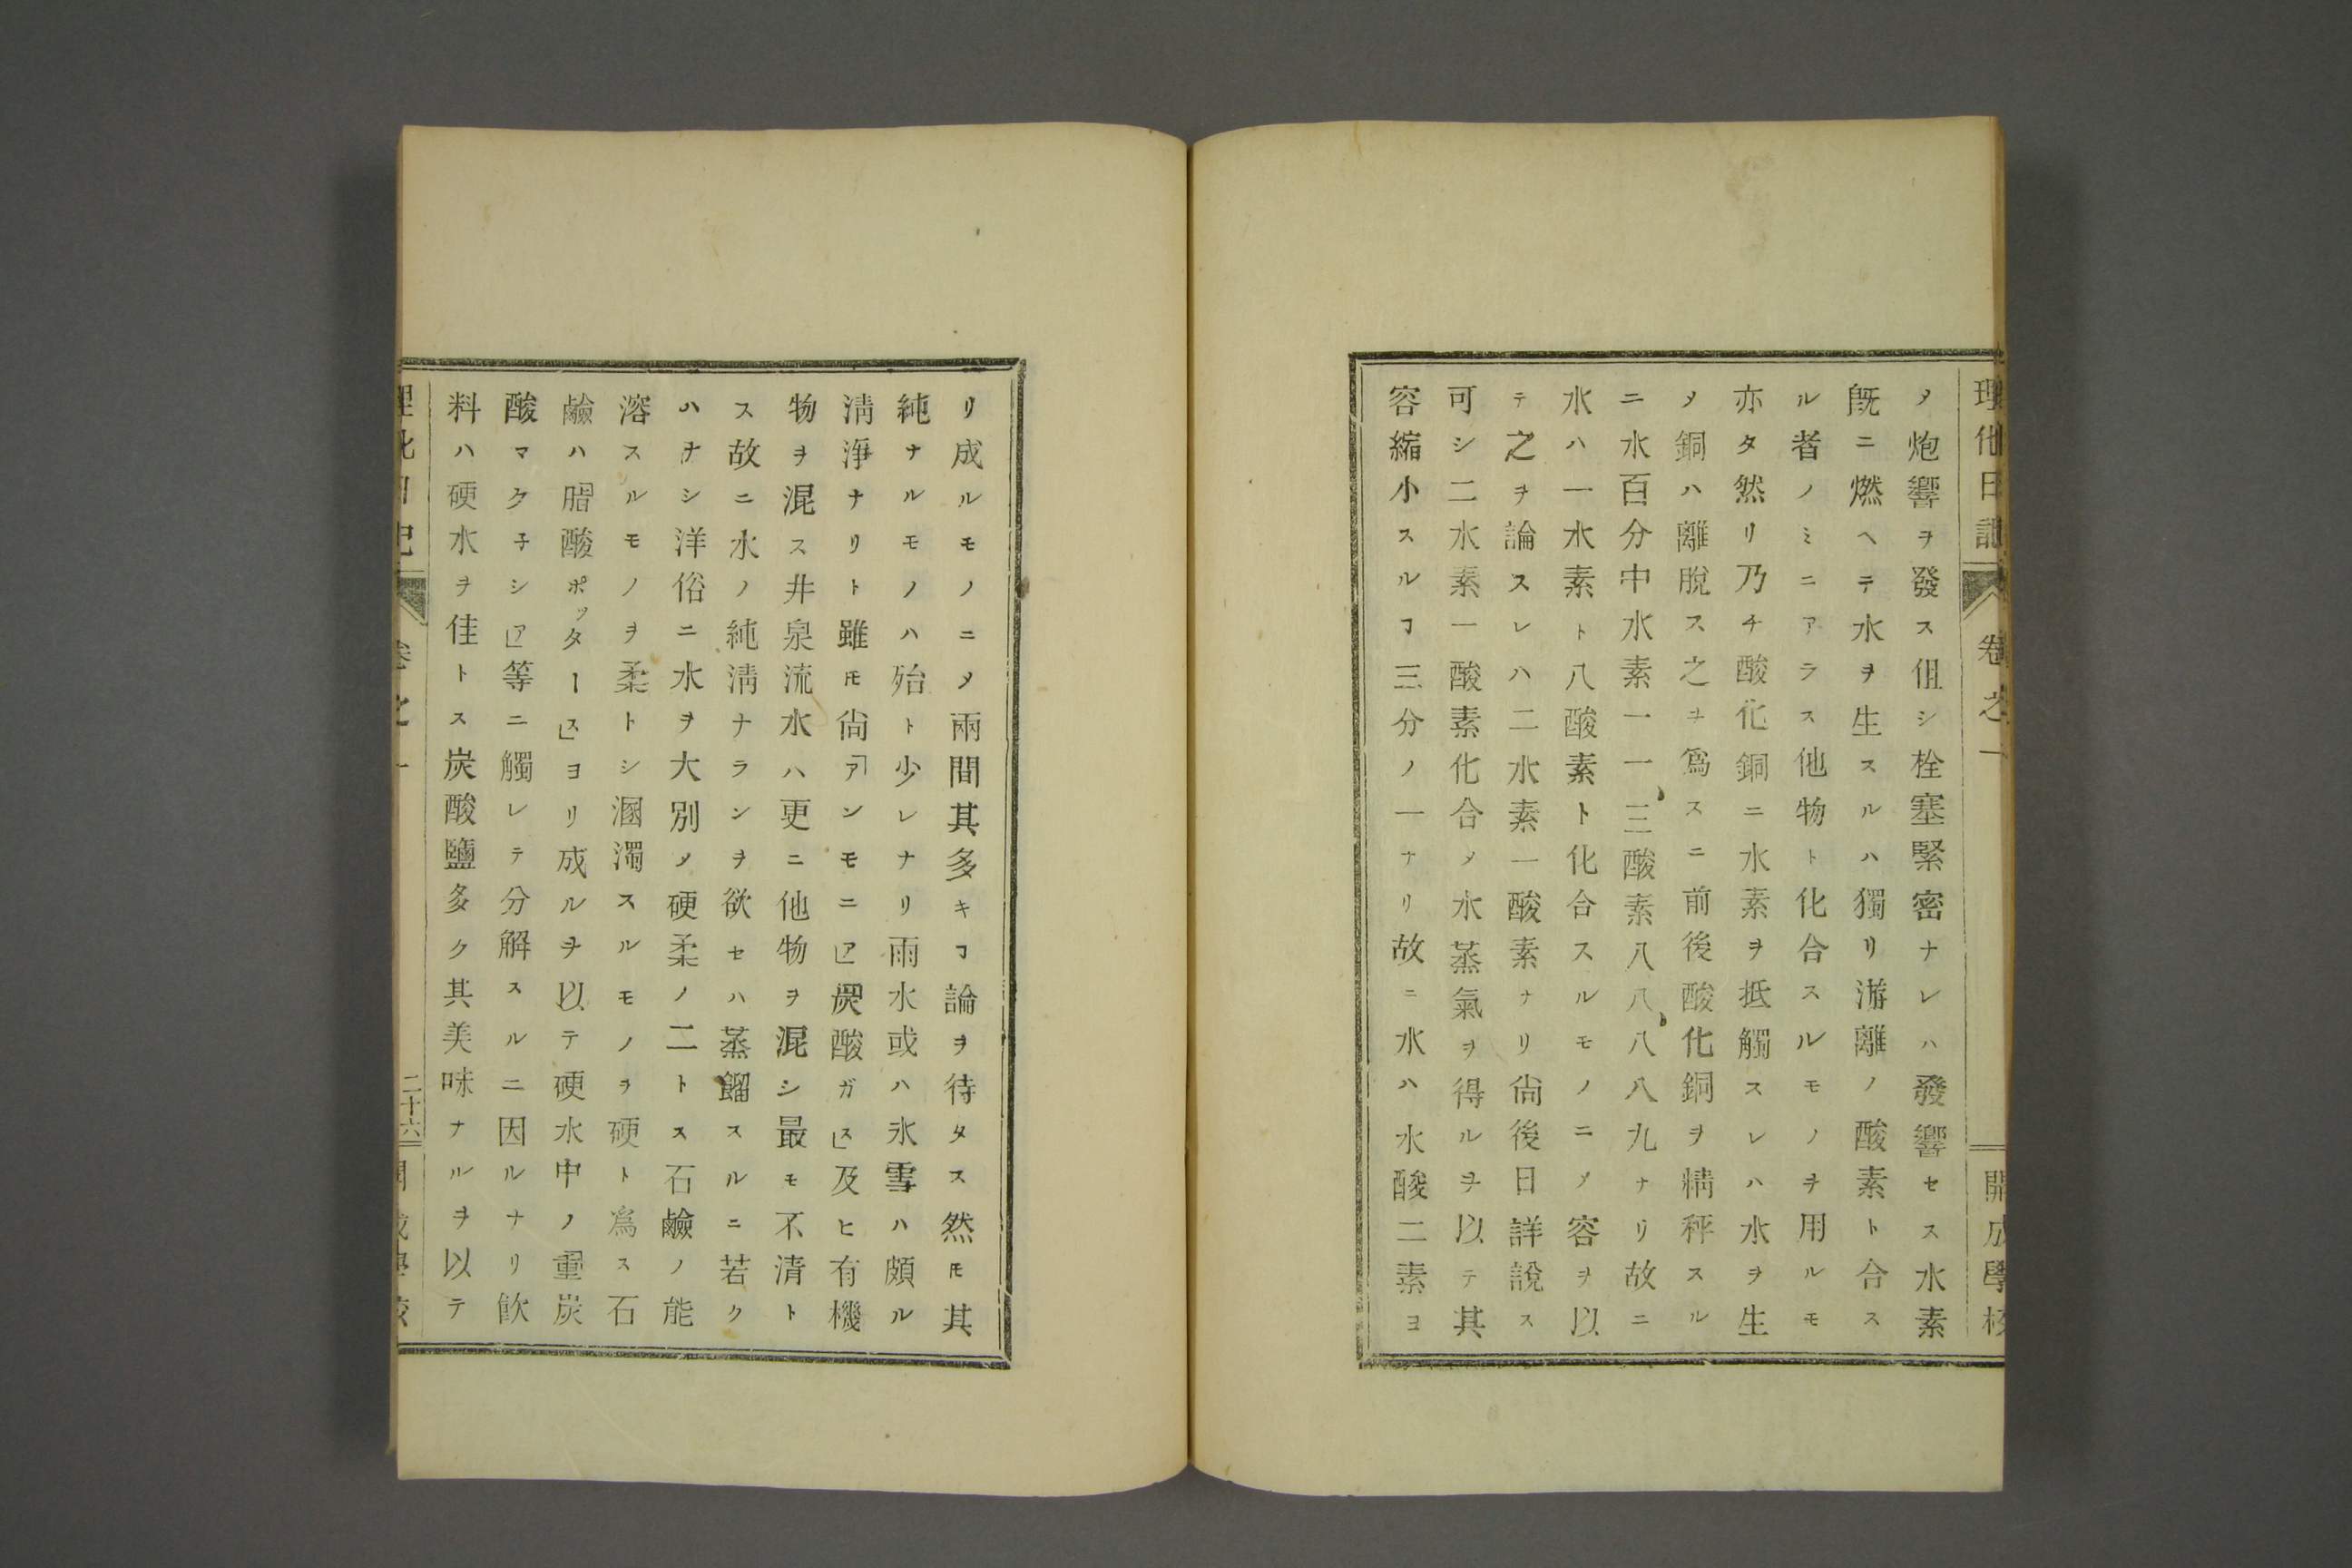 理化日記 卷之一 開成學校
〆炮響ヲ發ス伹シ栓塞緊密ナレハ發響セス水素
旣ニ燃ヘテ水ヲ生スルハ獨リ游離ノ酸素ト合ス
ル者ノミニアラス他物ト化合スルモノヲ用ルモ
亦タ然リ乃チ酸化銅ニ水素ヲ抵觸スレハ水ヲ生
〆銅ハ離脫ス之ヲ爲スニ前後酸化銅ヲ精秤スル
ニ水百分中水素一一、三酸素八八、八八九ナリ故ニ
水ハ一水素ト八酸素ト化合スルモノニ〆容ヲ以
テ之ヲ論スレハ二水素一酸素ナリ尙後日詳說ス
可シ二水素一酸素化合〆水蒸氣ヲ得ルヲ以テ其
容縮小スルヿ三分ノ一ナリ故ニ水ハ水酸二素ヨ
リ成ルモノニ〆兩間其多キヿ論ヲ待タス然𪜈其
純ナルモノハ殆ト少レナリ雨水或ハ氷雪ハ頗ル
淸淨ナリト雖𪜈尙「アンモニア」「炭酸ガス」及ヒ有機
物ヲ混ス井泉流水ハ更ニ他物ヲ混シ最モ不清ト
ス故ニ水ノ純淸ナランヲ欲セハ蒸餾スルニ若ク
ハナシ洋俗ニ水ヲ大別〆硬柔ノ二トス石鹼ノ能
溶スルモノヲ柔トシ溷濁スルモノヲ硬ト爲ス石
鹼ハ「脂酸ポッタース」ヨリ成ルヲ以テ硬水中ノ「重炭
酸マクネシア」等ニ觸レテ分解スルニ因ルナリ飮
料ハ硬水ヲ佳トス炭酸鹽多ク其美味ナルヲ以テ
二十六